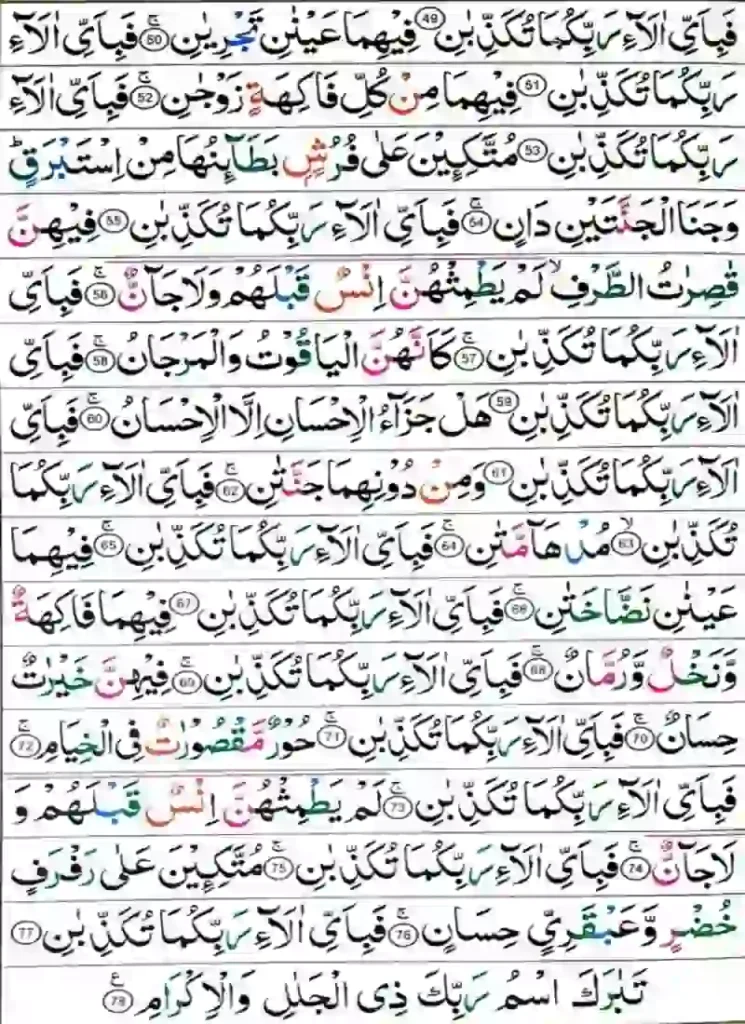 فَبِاَىِّ اٰلَآءِ رَبِّكُمَا تُكَذِّبٰنِ ﴿49﴾ فِيْهِمَا عَيْنٰنِ تَجْرِيٰنِ ﴿50﴾ۚ فَبِاَىِّ اٰلَآءِ
رَبِّكُمَا تُكَذِّبٰنِ ﴿51﴾ فِيْهِمَا مِنْ كُلِّ فَاكِهَةٍ زَوْجٰنِ ﴿52﴾ۚ فَبِاَىِّ اٰلَآءِ
رَبِّكُمَا تُكَذِّبٰنِ ﴿53﴾ مُتَّكِـِٕيْنَ عَلٰى فُرُشٍۭ بَطَآىِٕنُهَا مِنْ اِسْتَبْرَقٍؕ
وَجَنَا الْجَنَّتَيْنِ دَانٍ ﴿54﴾ۚ فَبِاَىِّ اٰلَآءِ رَبِّكُمَا تُكَذِّبٰنِ ﴿55﴾ فِيْهِنَّ
قٰصِرٰتُ الطَّرْفِۙ لَمْ يَطْمِثْهُنَّ اِنْسٌ قَبْلَهُمْ وَلَا جَآنٌّ ﴿56﴾ۚ فَبِاَىِّ
اٰلَآءِ رَبِّكُمَا تُكَذِّبٰنِ ﴿57﴾ۚ كَاَنَّهُنَّ الْيَاقُوْتُ وَالْمَرْجَانُ ﴿58﴾ۚ فَبِاَىِّ
اٰلَآءِ رَبِّكُمَا تُكَذِّبٰنِ ﴿59﴾ هَلْ جَزَآءُ الْاِحْسَانِ اِلَّا الْاِحْسَانُ ﴿60﴾ۚ فَبِاَىِّ
اٰلَآءِ رَبِّكُمَا تُكَذِّبٰنِ ﴿61﴾ وَمِنْ دُوْنِهِمَا جَنَّتٰنِ ﴿62﴾ۚ فَبِاَىِّ اٰلَآءِ رَبِّكُمَا
تُكَذِّبٰنِ ﴿63﴾ۙ مُدْهَآمَّتٰنِ ﴿64﴾ۚ فَبِاَىِّ اٰلَآءِ رَبِّكُمَا تُكَذِّبٰنِ ﴿65﴾ۚ فِيْهِمَا
عَيْنٰنِ نَضَّاخَتٰنِ ﴿66﴾ۚ فَبِاَىِّ اٰلَآءِ رَبِّكُمَا تُكَذِّبٰنِ ﴿67﴾ فِيْهِمَا فَاكِهَةٌ
وَّنَخْلٌ وَّرُمَّانٌ ﴿68﴾ۚ فَبِاَىِّ اٰلَآءِ رَبِّكُمَا تُكَذِّبٰنِ ﴿69﴾ۚ فِيْهِنَّ خَيْرٰتٌ
حِسَانٌ ﴿70﴾ۚ فَبِاَىِّ اٰلَآءِ رَبِّكُمَا تُكَذِّبٰنِ ﴿71﴾ۚ حُوْرٌ مَّقْصُوْرٰتٌ فِى الْخِيَامِ ﴿72﴾ۚ
فَبِاَىِّ اٰلَآءِ رَبِّكُمَا تُكَذِّبٰنِ ﴿73﴾ۚ لَمْ يَطْمِثْهُنَّ اِنْسٌ قَبْلَهُمْ وَ
لَا جَآنٌّ ﴿74﴾ۚ فَبِاَىِّ اٰلَآءِ رَبِّكُمَا تُكَذِّبٰنِ ﴿75﴾ۚ مُتَّكِـِٕيْنَ عَلٰى رَفْرَفٍ
خُضْرٍ وَّعَبْقَرِيٍّ حِسَانٍ ﴿76﴾ۚ فَبِاَىِّ اٰلَآءِ رَبِّكُمَا تُكَذِّبٰنِ ﴿77﴾
تَبٰرَكَ اسْمُ رَبِّكَ ذِى الْجَلٰلِ وَالْاِكْرَامِ ﴿78﴾ع